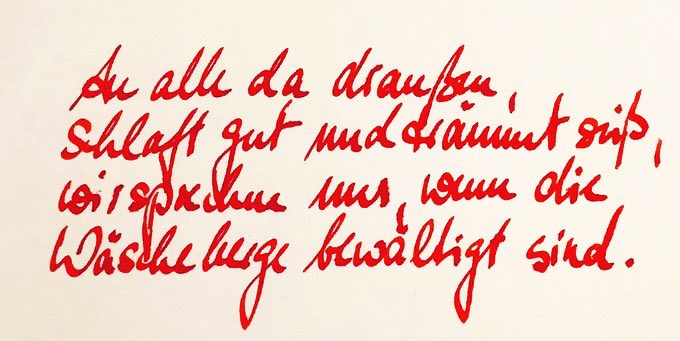 An alle da draußen,
schlaft gut und träumt süß,
wir sprechen uns, wenn die
Wäscheberge bewältigt sind.